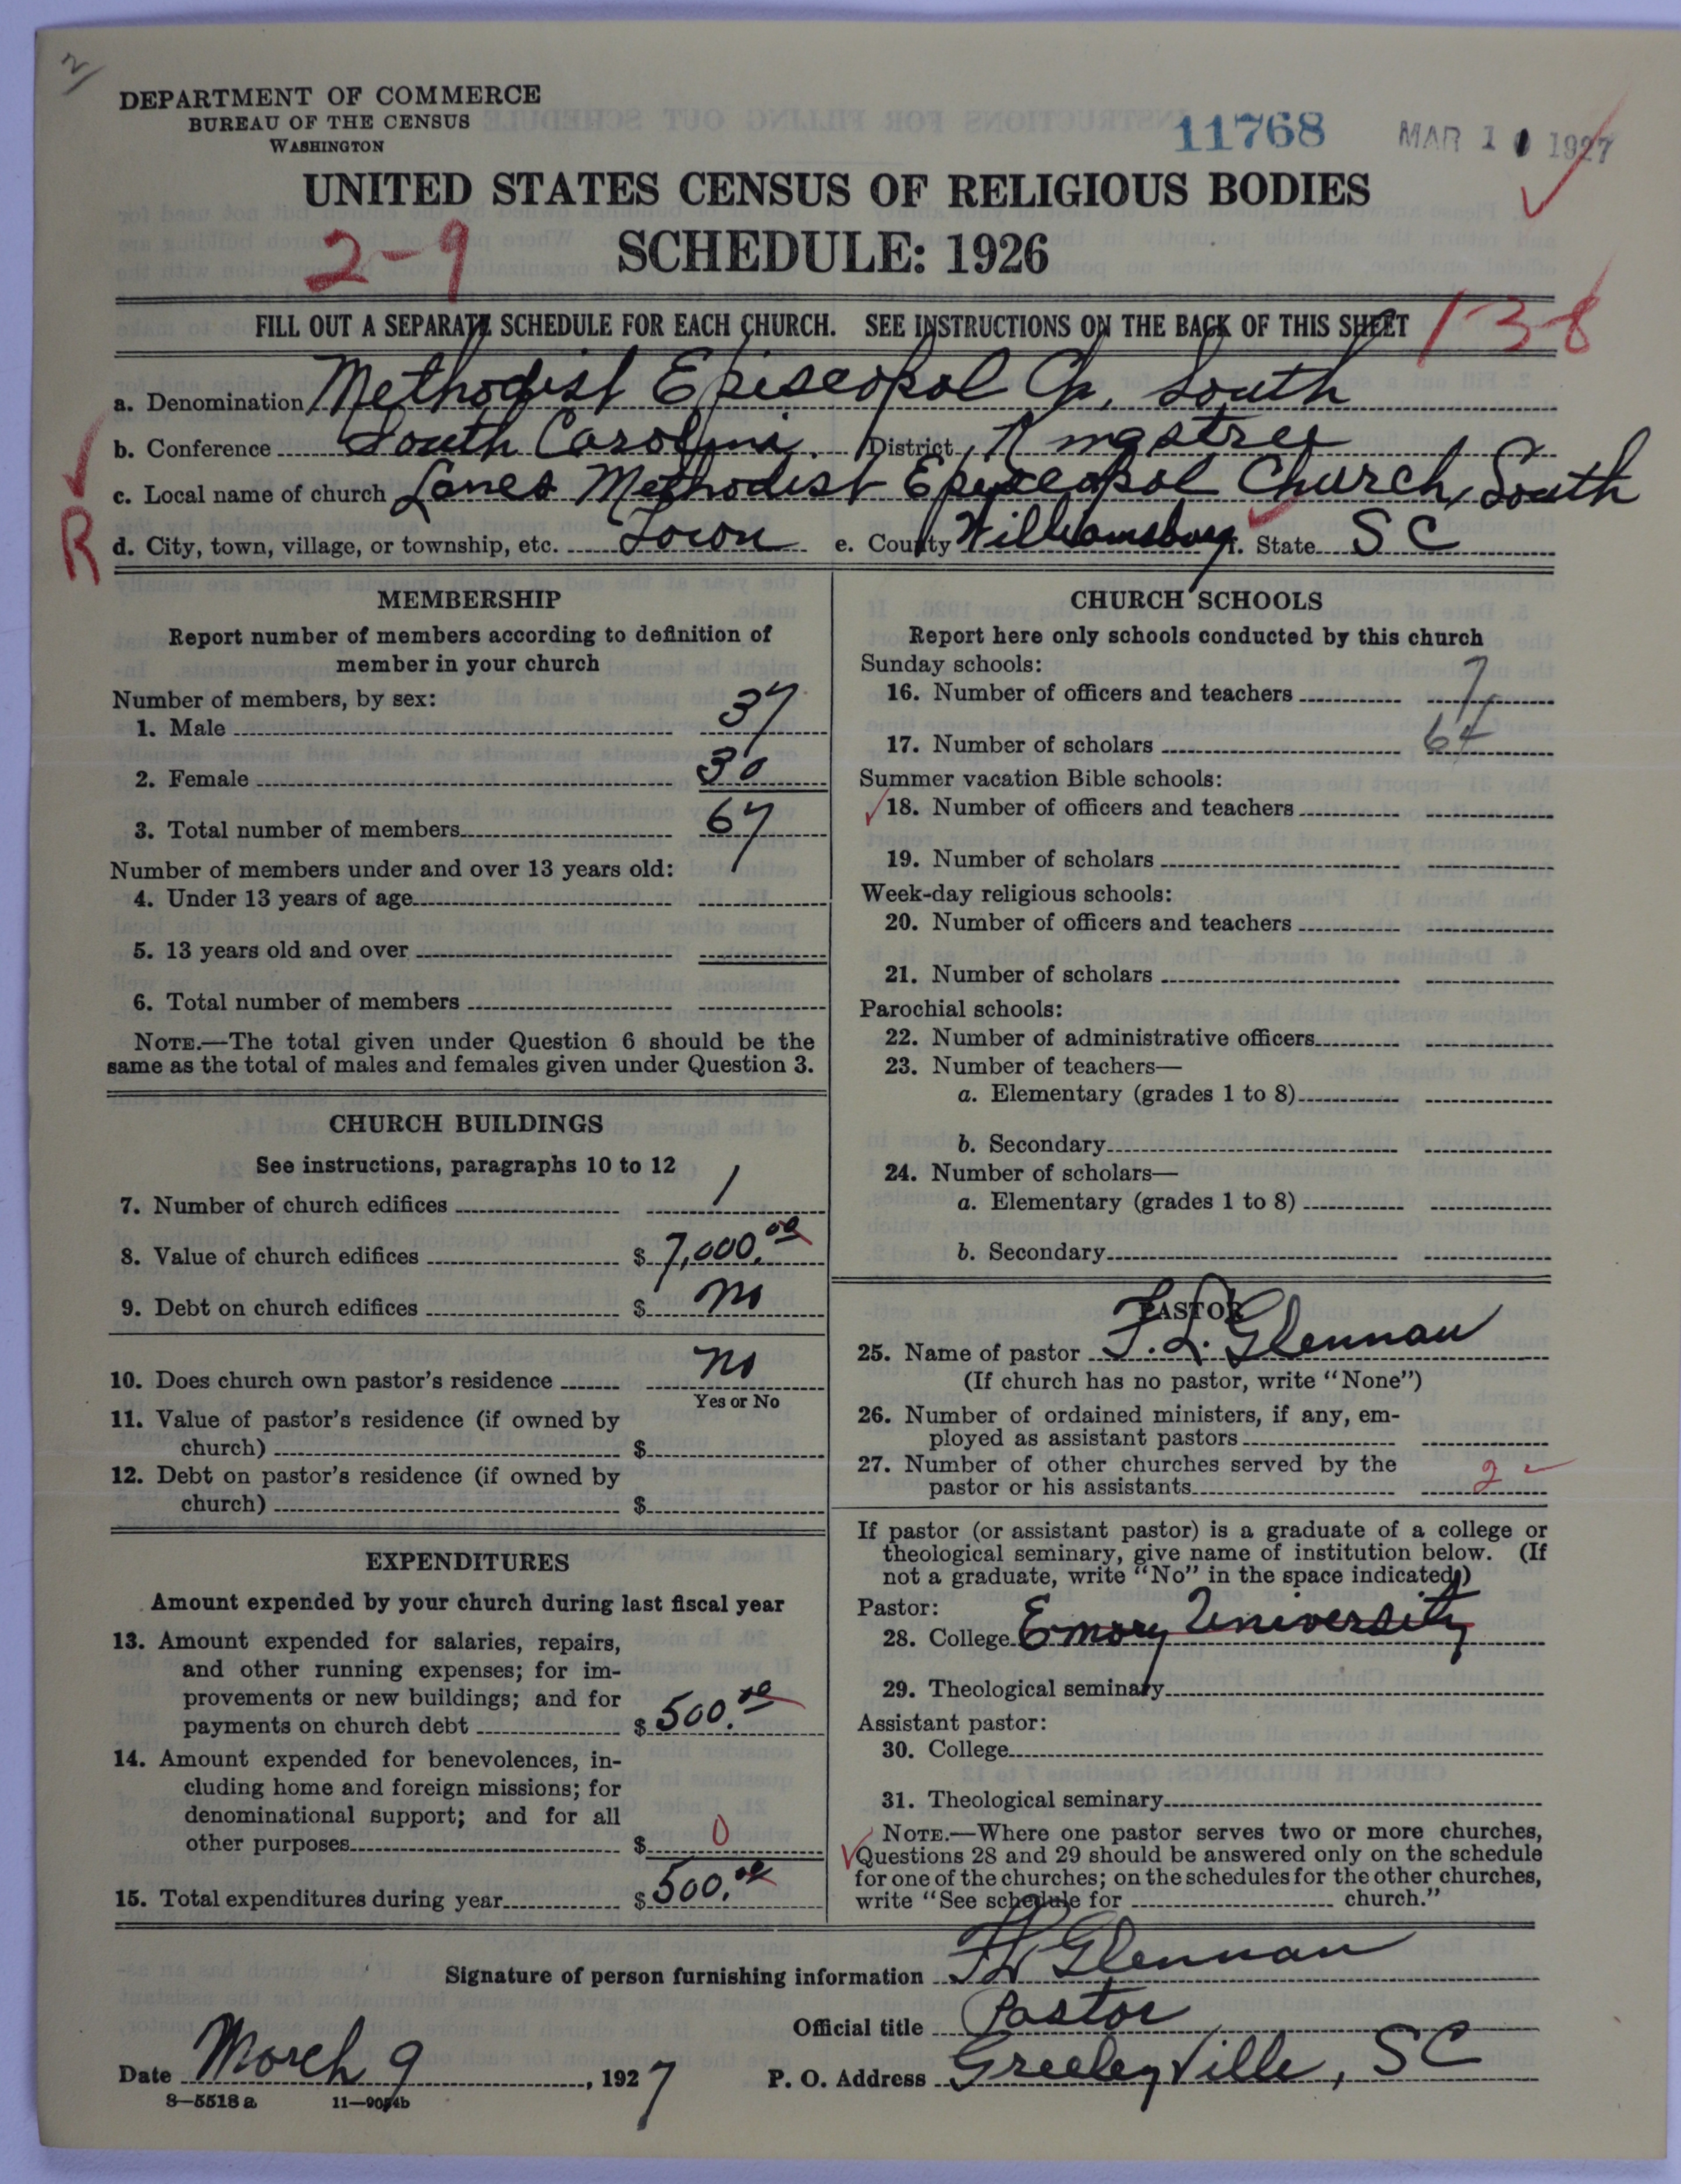 2
DEPARTMENT OF COMMERCE
BUREAU OF THE CENSUS
WASHINGTON
11768 MAR 10 1927
UNITED STATES CENSUS OF RELIGIOUS BODIES
2-9 SCHEDULE: 1926
FILL OUT A SEPARATE SCHEDULE FOR EACH CHURCH. SEE INSTRUCTIONS ON THE BACK OF THIS SHEET 138
a. Denomination Methodist Episcopal Ch, South
b. Conference South Carolina. District Kingstree
c. Local name of church Lanes Methodist Episcopal Church, South
R
d. City, town, village, or township, etc. Town e. County Williamsburg f. State S C
MEMBERSHIP
Report number of members according to definition of
member in your church
Number of members, by sex:
1. Male 37
2. Female 30
3. Total number of members 67
Number of members under and over 13 years old:
4. Under 13 years of age
5. 13 years old and over
6. Total number of members
NOTE.—The total given under Question 6 should be the
same as the total of males and females given under Question 3.
CHURCH BUILDINGS
See instructions, paragraphs 10 to 12
7. Number of church edifices 1
8. Value of church edifices $ 7,000.00
9. Debt on church edifices $ no
10. Does church own pastor's residence no
Yes or No
11. Value of pastor's residence (if owned by
church) $
12. Debt on pastor's residence (if owned by
church) $
EXPENDITURES
Amount expended by your church during last fiscal year
13. Amount expended for salaries, repairs,
and other running expenses; for im-
provements or new buildings; and for
payments on church debt $ 500.00
14. Amount expended for benevolences, in-
cluding home and foreign missions; for
denominational support; and for all
other purposes $ 0
15. Total expenditures during year $ 500.00
CHURCH SCHOOLS
Report here only schools conducted by this church
Sunday schools:
16. Number of officers and teachers 7
17. Number of scholars 64
Summer vacation Bible schools:
18. Number of officers and teachers
19. Number of scholars
Week-day religious schools:
20. Number of officers and teachers
21. Number of scholars
Parochial schools:
22. Number of administrative officers
23. Number of teachers—
a. Elementary (grades 1 to 8)
b. Secondary
24. Number of scholars—
a. Elementary (grades 1 to 8)
b. Secondary
PASTOR
25. Name of pastor F. L. Glennan
(If church has no pastor, write "None")
26. Number of ordained ministers, if any, em-
ployed as assistant pastors
27. Number of other churches served by the
pastor or his assistants 2
If pastor (or assistant pastor) is a graduate of a college or
theological seminary, give name of institution below. (If
not a graduate, write "No" in the space indicated.)
Pastor:
28. College Emory University
29. Theological seminary
Assistant pastor:
30. College
31. Theological seminary
NOTE.—Where one pastor serves two or more churches,
Questions 28 and 29 should be answered only on the schedule
for one of the churches; on the schedules for the other churches,
write "See schedule for church."
Signature of person furnishing information F L Glennan
Official title Pastor
Date March 9, 1927 P. O. Address Greeleyville, SC
8—5518 a 11—9054b